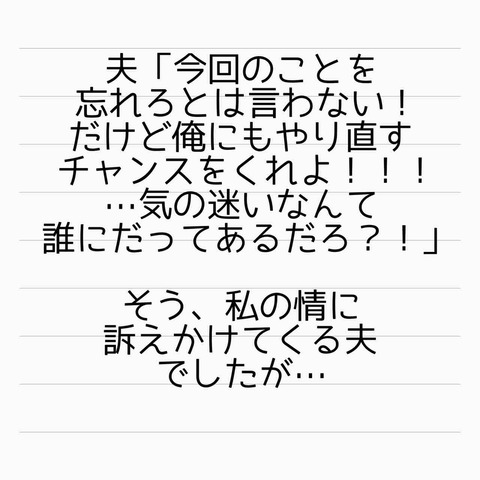 夫「今回のことを
忘れろとは言わない！
だけど俺にもやり直す
チャンスをくれよ！！！
…気の迷いなんて
誰にだってあるだろ？！」
そう、私の情に
訴えかけてくる夫
でしたが…